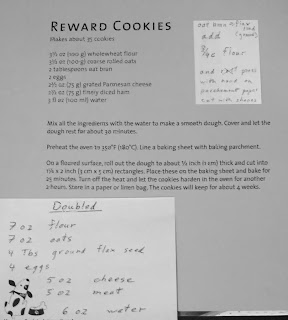 REWARD COOKIES
Makes about 35 cookies
3½ oz (100 g) wholewheat flour
3½ oz (100 g) coarse rolled oats
2 tablespoons oat bran
2 eggs
2½ oz (75 g) grated Parmesan cheese
2½ oz (75 g) finely diced ham
3 fl oz (100 ml) water
oat bran = flax seed
(ground)
add
3/4 c flour
and roll
with hand on
parchment paper
Mix all the ingredients with the water to make a smooth dough. Cover and let the
dough rest for about 30 minutes.
Preheat the oven to 350°F (180°C). Line a baking sheet with baking parchment.
On a floured surface, roll out the dough to about ½ inch (1 cm) thick and cut into
1¼ x 2 inch (3 cm x 5 cm) rectangles. Place these on the baking sheet and bake for
25 minutes. Turn off the heat and let the cookies harden in the oven for another
2 hours. Store in a paper or linen bag. The cookies will keep for about 4 weeks.
Doubled
7 oz flour
7 oz oats
4 Tbs ground flax seed
4 eggs
5 oz cheese
5 oz meat
6 oz water